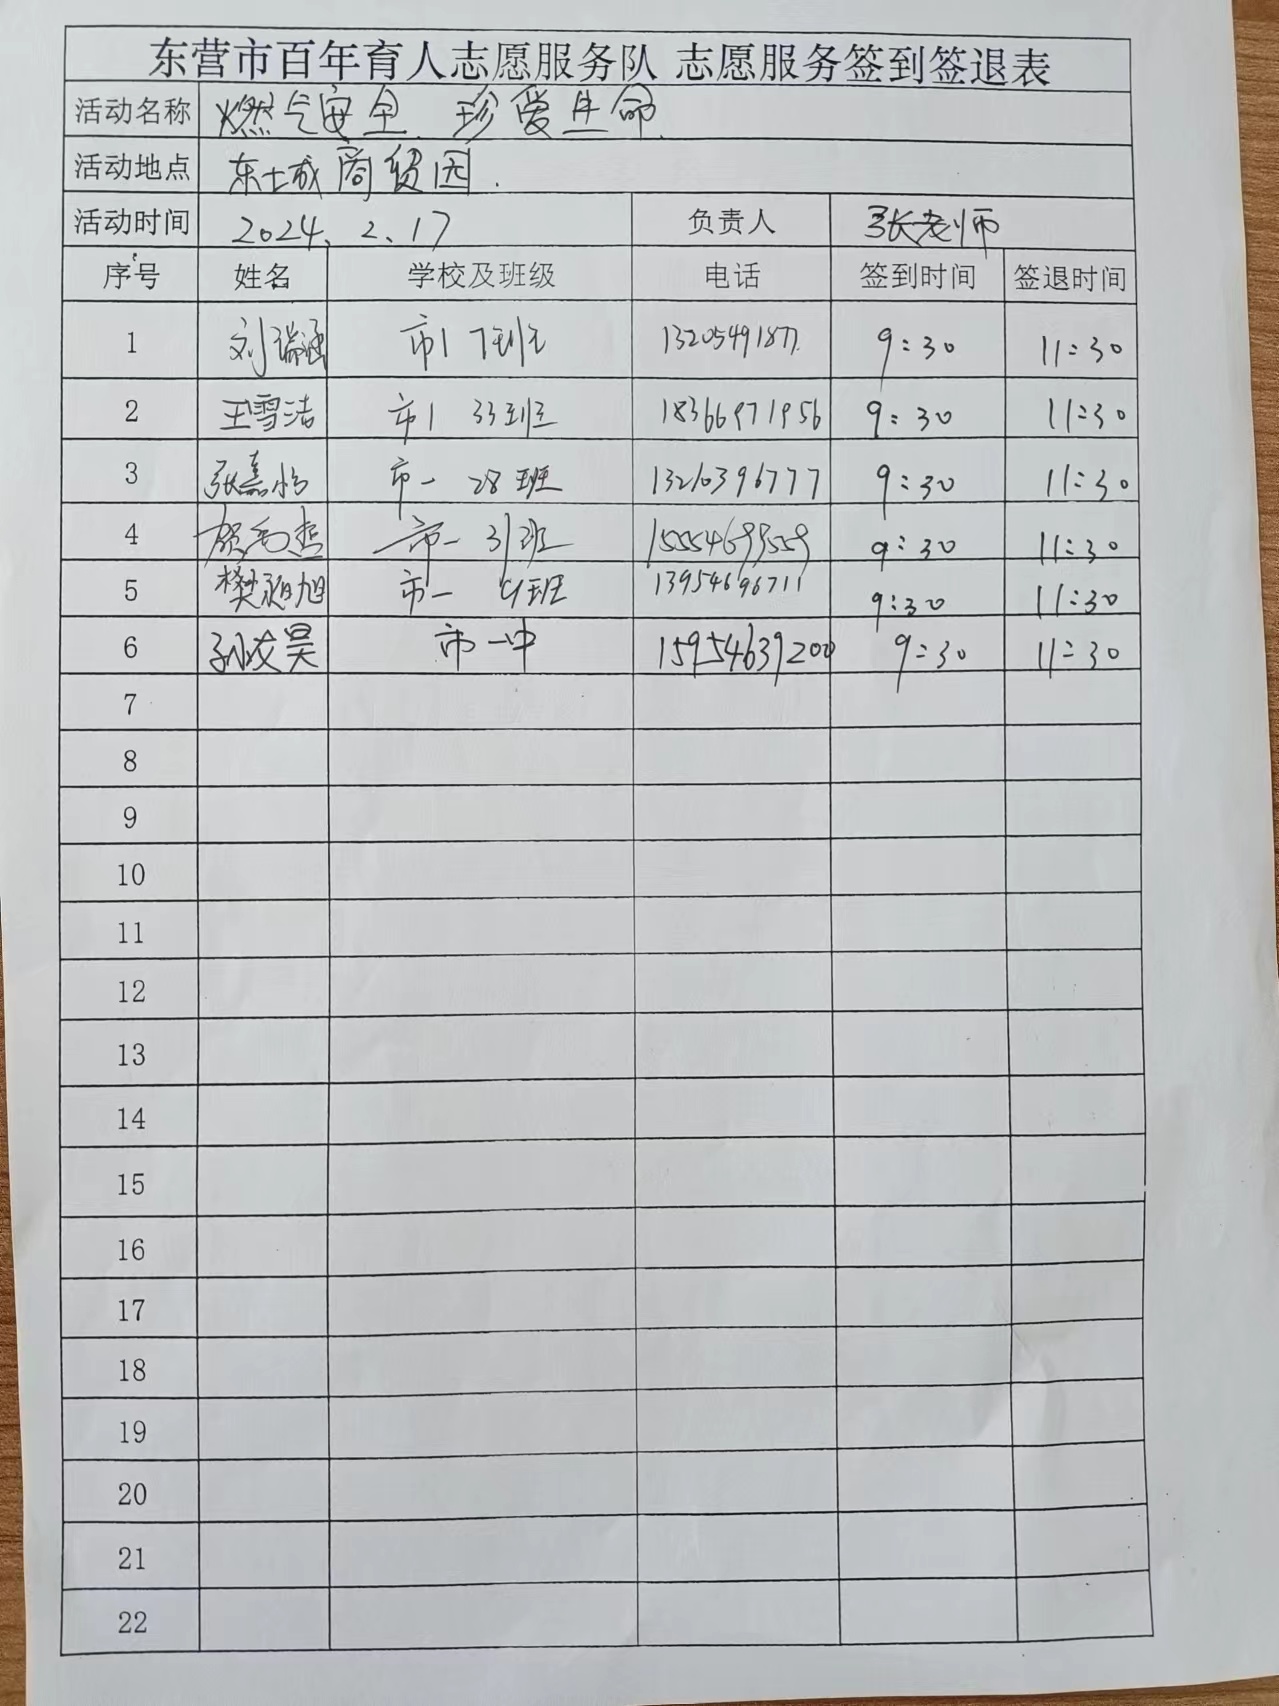 东营市百年育人志愿服务队 志愿服务签到签退表
活动名称 燃气安全、珍爱生命
活动地点 东七城商贸园.
活动时间 2024、2、17 负责人 张老师
序号 姓名 学校及班级 电话 签到时间 签退时间
1 刘瑞涵 市1 7班 13205491877 9:30 11:30
2 王雪洁 市1 33班 18366971956 9:30 11:30
3 张嘉怡 市一 28班 13210396777 9:30 11:30
4 市一 31班 15554699559 9:30 11:30
5 樊昶旭 市一 9班 13954696711 9:30 11:30
6 孙友昊 市一中 15954639200 9:30 11:30
7
8
9
10
11
12
13
14
15
16
17
18
19
20
21
22